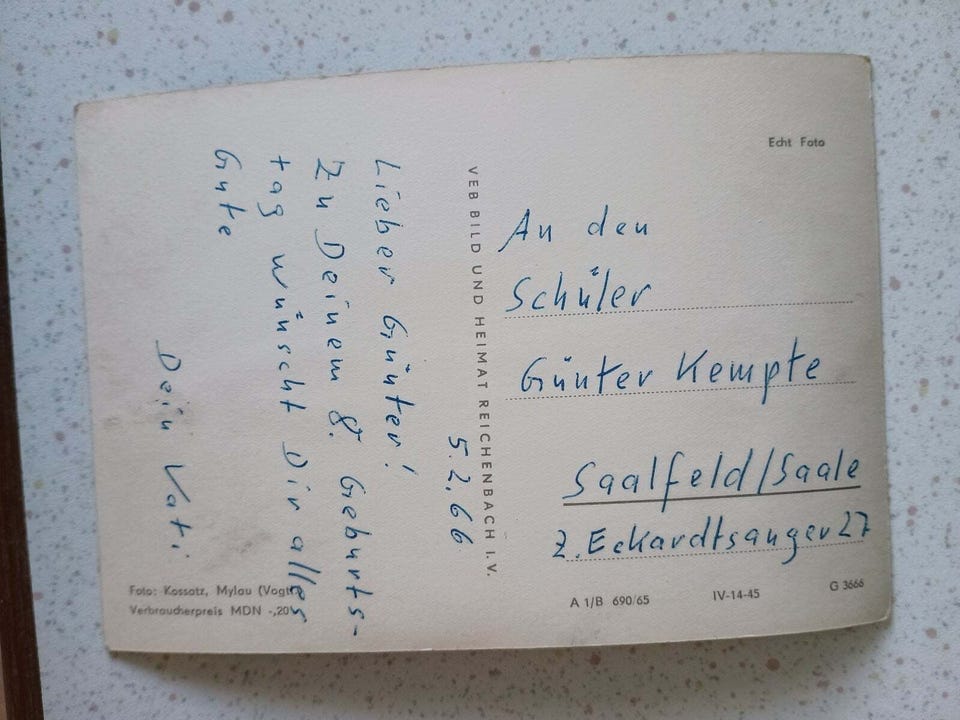 5.2.66
Lieber Günter!
Zu Deinem 8. Geburts-
tag wünscht Dir alles
Gute
Dein Vati.
VEB BILD UND HEIMAT REICHENBACH I. V.
Echt Foto
An den
Schüler
Günter Kempte
Saalfeld/Saale
2. Eckardtsanger 27
Foto: Kossatz, Mylau (Vogtl
Verbraucherpreis MDN -,20
A 1/B 690/65
IV-14-45
G 3666